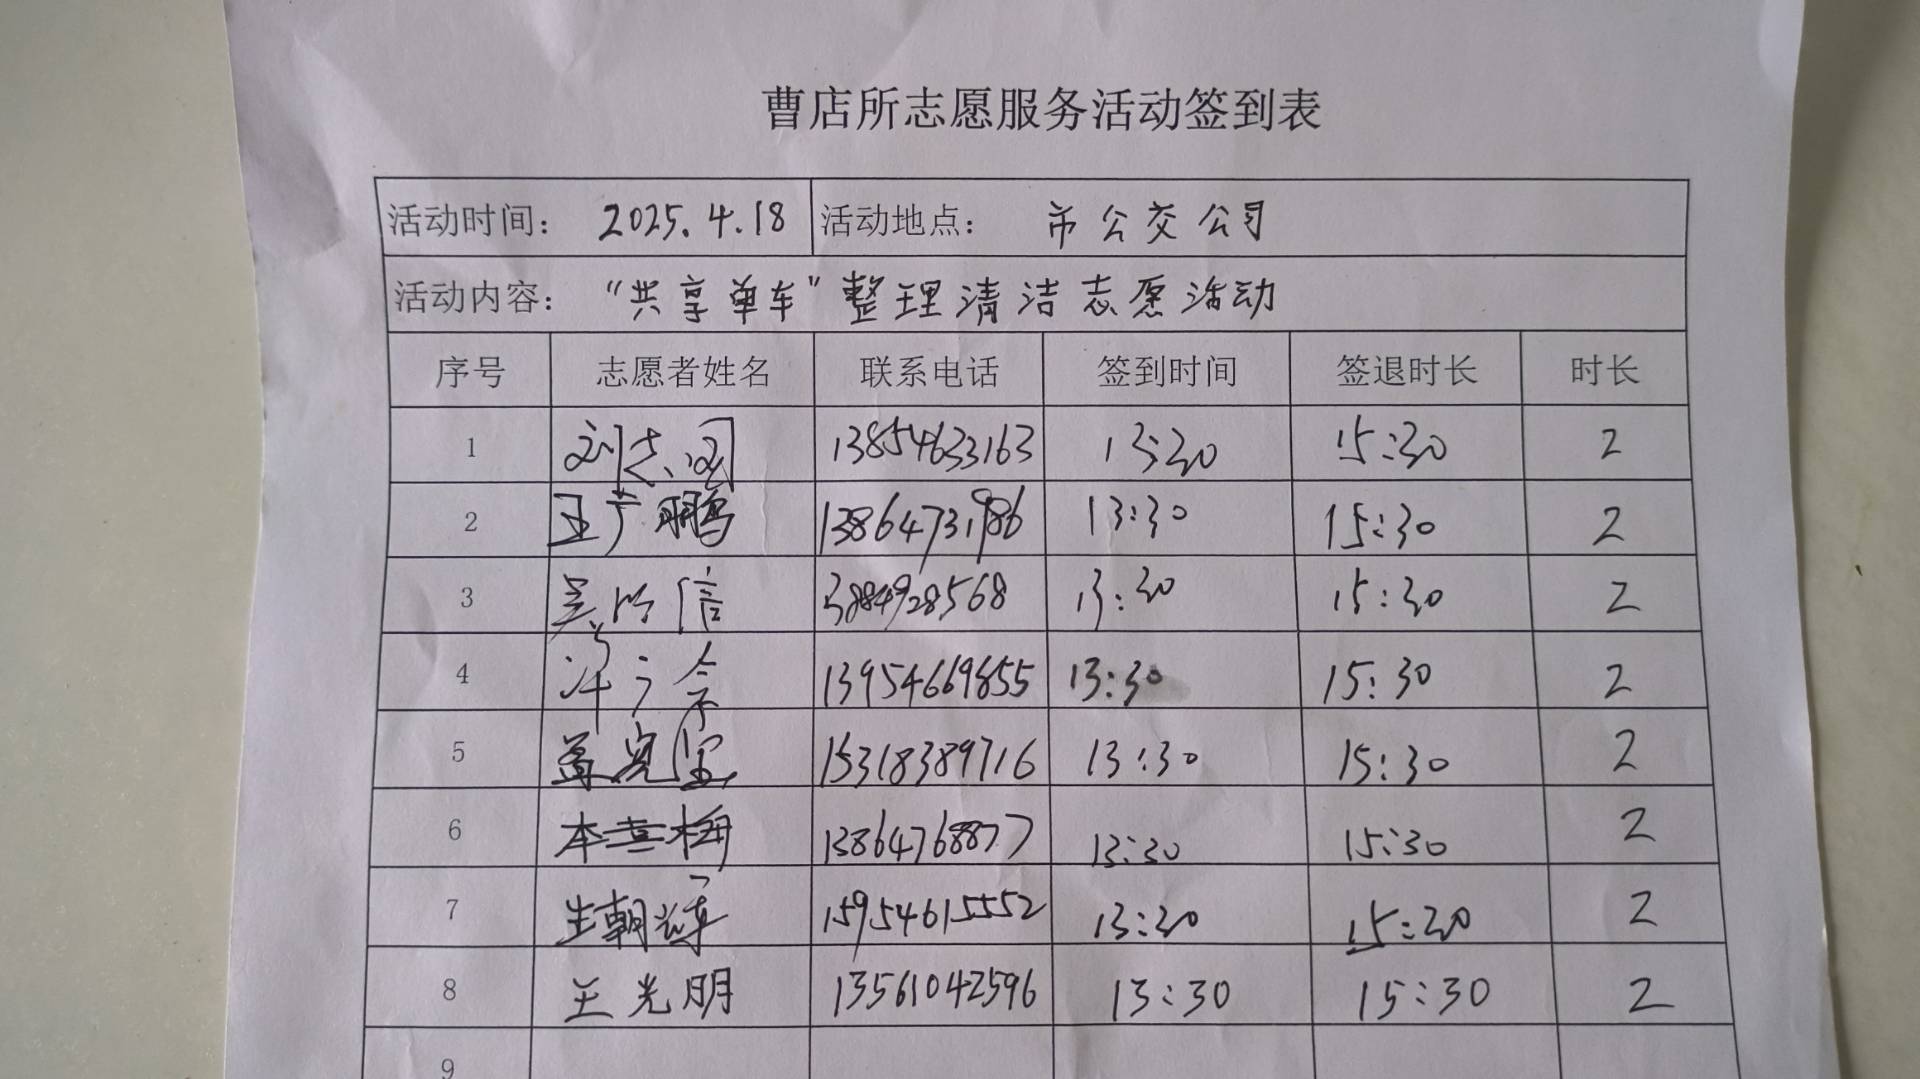 曹店所志愿服务活动签到表
活动时间： 2025.4.18 活动地点： 市公交公司
活动内容： “共享单车”整理清洁志愿活动
序号 志愿者姓名 联系电话 签到时间 签退时长 时长
1 刘志国 13854633163 13:30 15:30 2
2 王广鹏 13864731986 13:30 15:30 2
3 13:30 15:30 2
4 13954669855 13:30 15:30 2
5 15318389716 13:30 15:30 2
6 13864768877 13:30 15:30 2
7 生朝辉 15954615552 13:30 15:30 2
8 王光明 13561042596 13:30 15:30 2
9